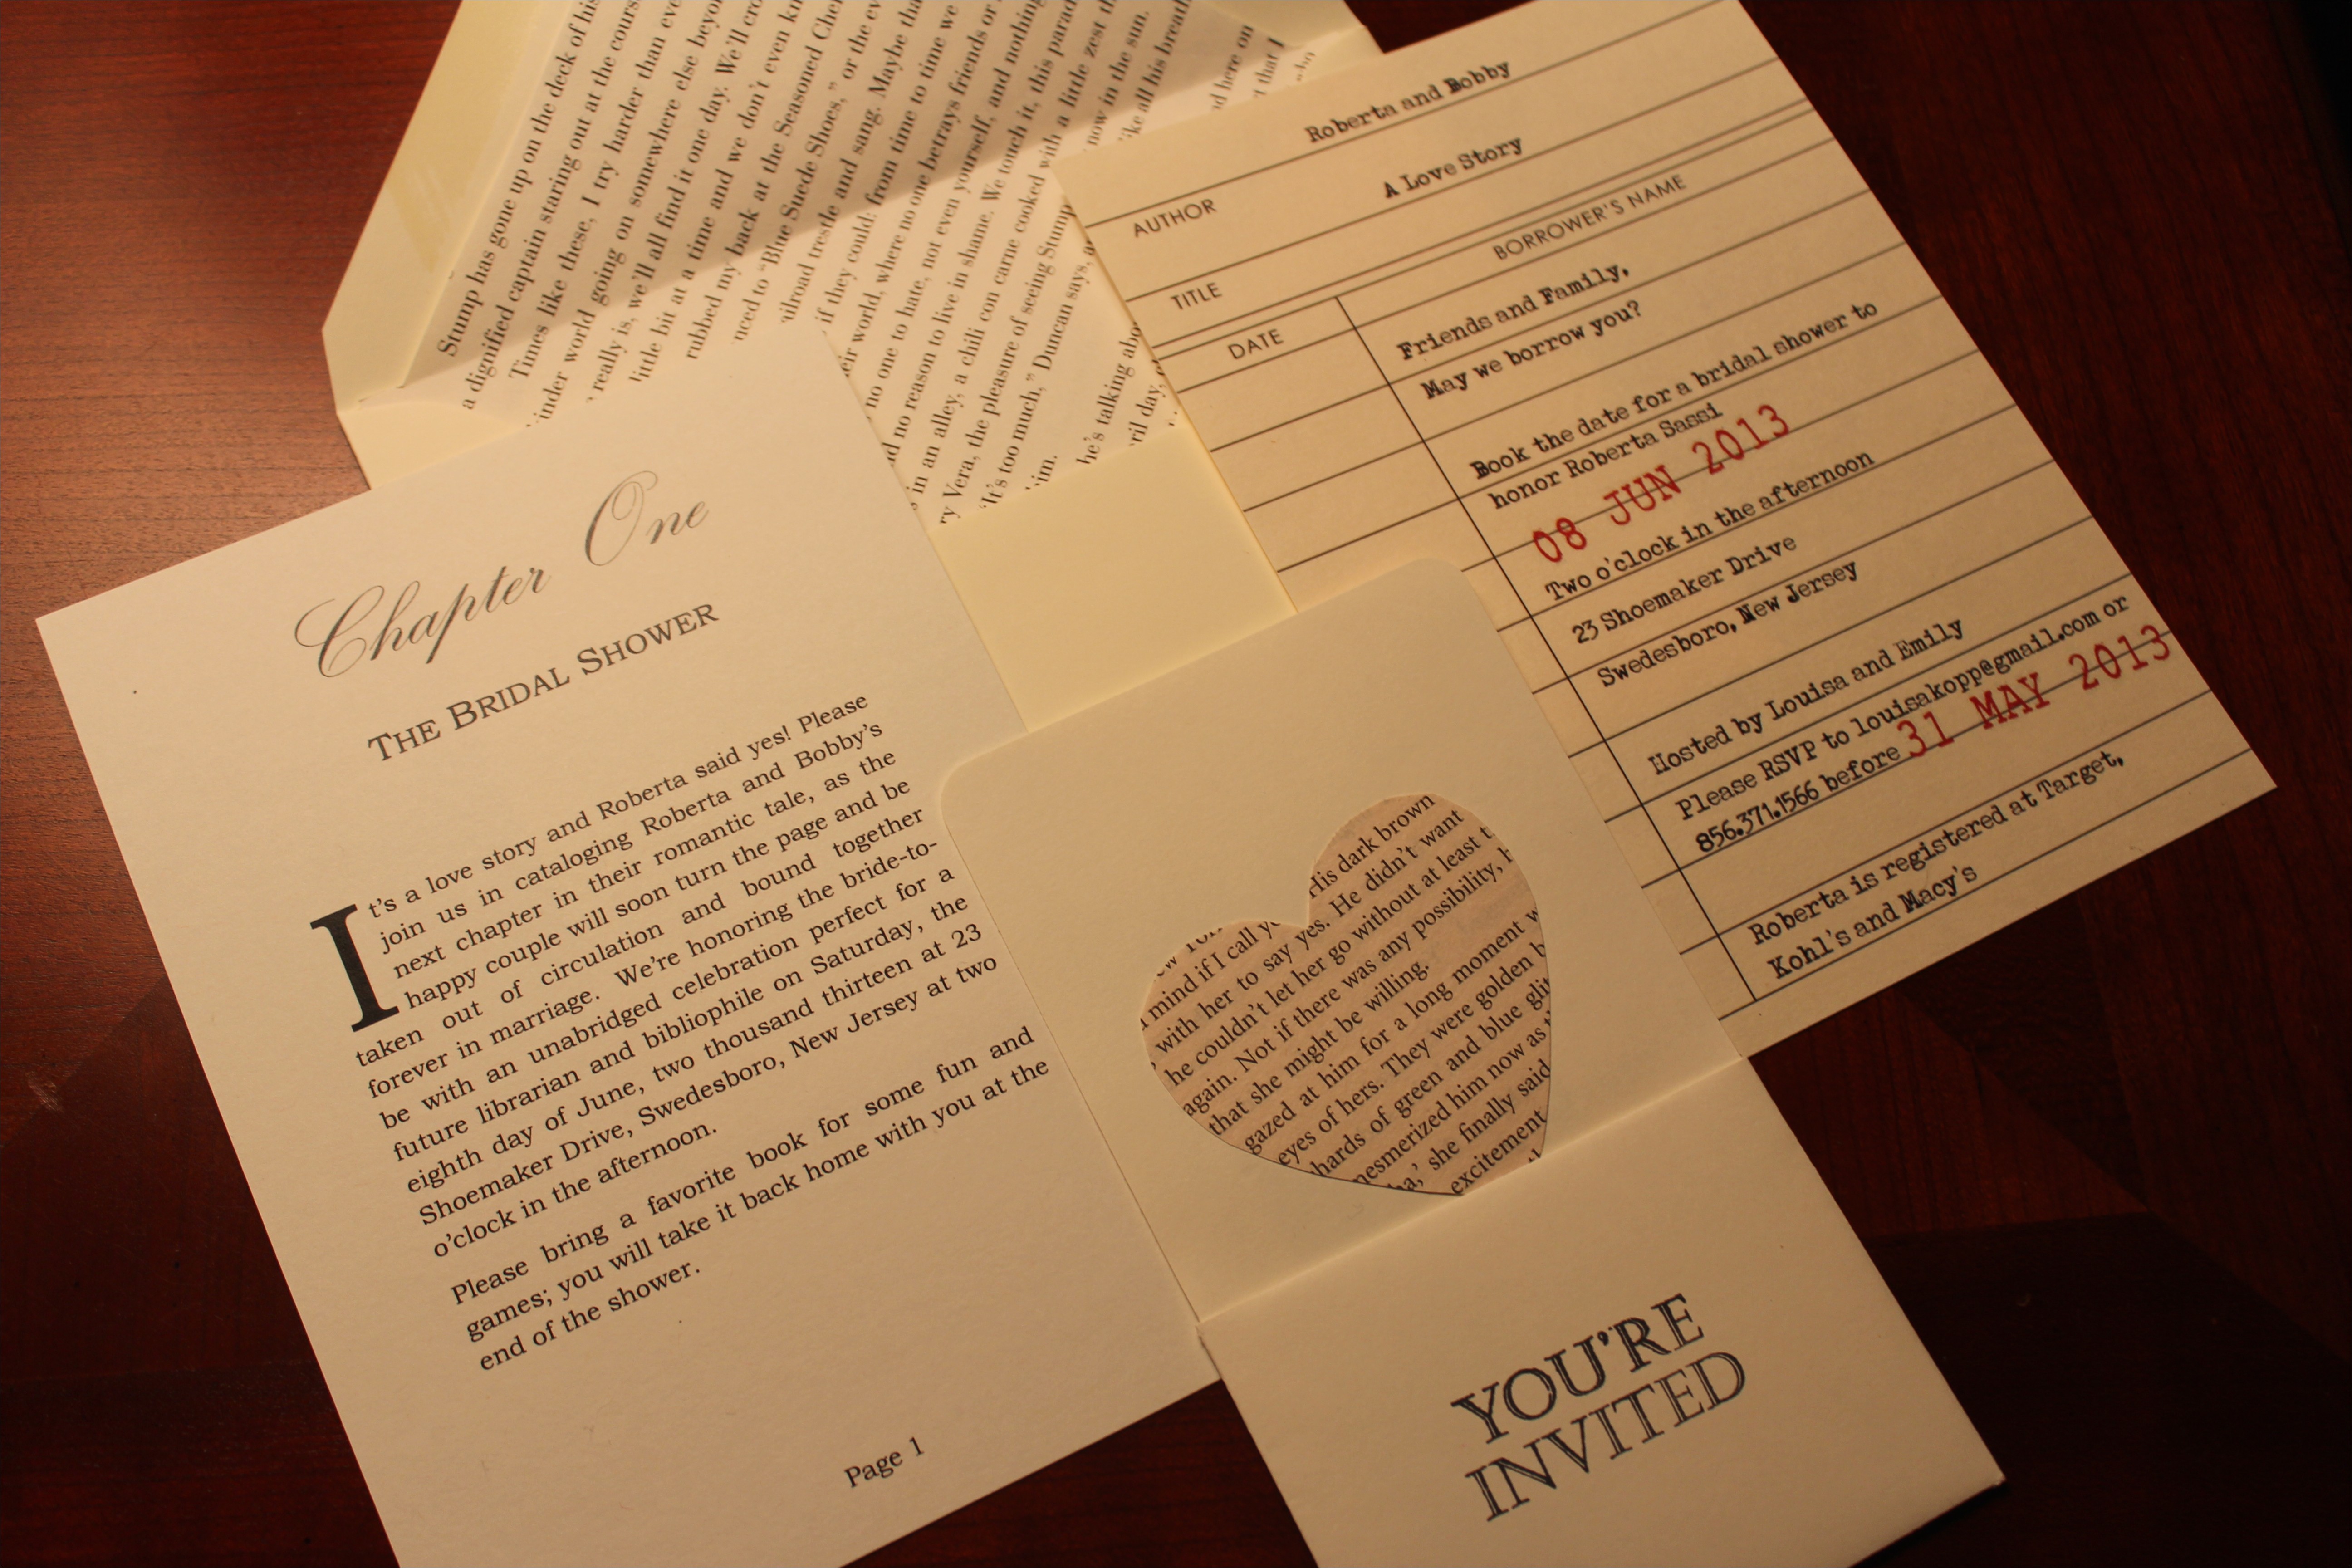 Stump has gone up on the deck of his
a dignified captain staring out at the cours
Times like these, I try harder than eve
inder world going on somewhere else beyo
really is, we'll all find it one day. We'll cro
little bit at a time and we don't even kn
rubbed my back at the Seasoned Che
uced to "Blue Suede Shoes," or the ev
ailroad trestle and sang. Maybe tha
if they could: from time to time we
eir world, where no one betrays friends or
no one to hate, not even yourself, and nothing
d no reason to live in shame. We touch it, this parad
in an alley, a chili con carne cooked with a little zest th
ry Vera, the pleasure of seeing Stump now in the sun.
"It's too much," Duncan says, a like all his breath
him.
he's talking abo d here on
ril day, that I
Roberta and Bobby
AUTHOR
A Love Story
TITLE
BORROWER'S NAME
DATE
Friends and Family,
May we borrow you?
Book the date for a bridal shower to
honor Roberta Sassi
08 JUN 2013
Two o'clock in the afternoon
23 Shoemaker Drive
Swedesboro, New Jersey
Hosted by Louisa and Emily
Please RSVP to louisakopp@gmail.com or
856.371.1566 before 31 MAY 2013
Roberta is registered at Target,
Kohl's and Macy's
Chapter One
THE BRIDAL SHOWER
It's a love story and Roberta said yes! Please
join us in cataloging Roberta and Bobby's
next chapter in their romantic tale, as the
happy couple will soon turn the page and be
taken out of circulation and bound together
forever in marriage. We're honoring the bride-to-
be with an unabridged celebration perfect for a
future librarian and bibliophile on Saturday, the
eighth day of June, two thousand thirteen at 23
Shoemaker Drive, Swedesboro, New Jersey at two
o'clock in the afternoon.
Please bring a favorite book for some fun and
games; you will take it back home with you at the
end of the shower.
Page 1
His dark brown
mind if I call
with her to say yes. He didn't want
he couldn't let her go without at least
again. Not if there was any possibility,
that she might be willing.
gazed at him for a long moment
eyes of hers. They were golden
hards of green and blue
nesmerized him now as
she finally said
excitement
YOU'RE
INVITED